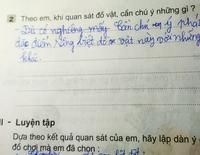 2 Theo em, khi quan sát đồ vật, cần chú ý những gì ?
- Dù có nghiêng mấy cần chú ý phá
đặc điểm riêng biệt đồ vật này với những
khác.
II - Luyện tập
Dựa theo kết quả quan sát của em, hãy lập dàn ý
đồ chơi mà em đã chọn :